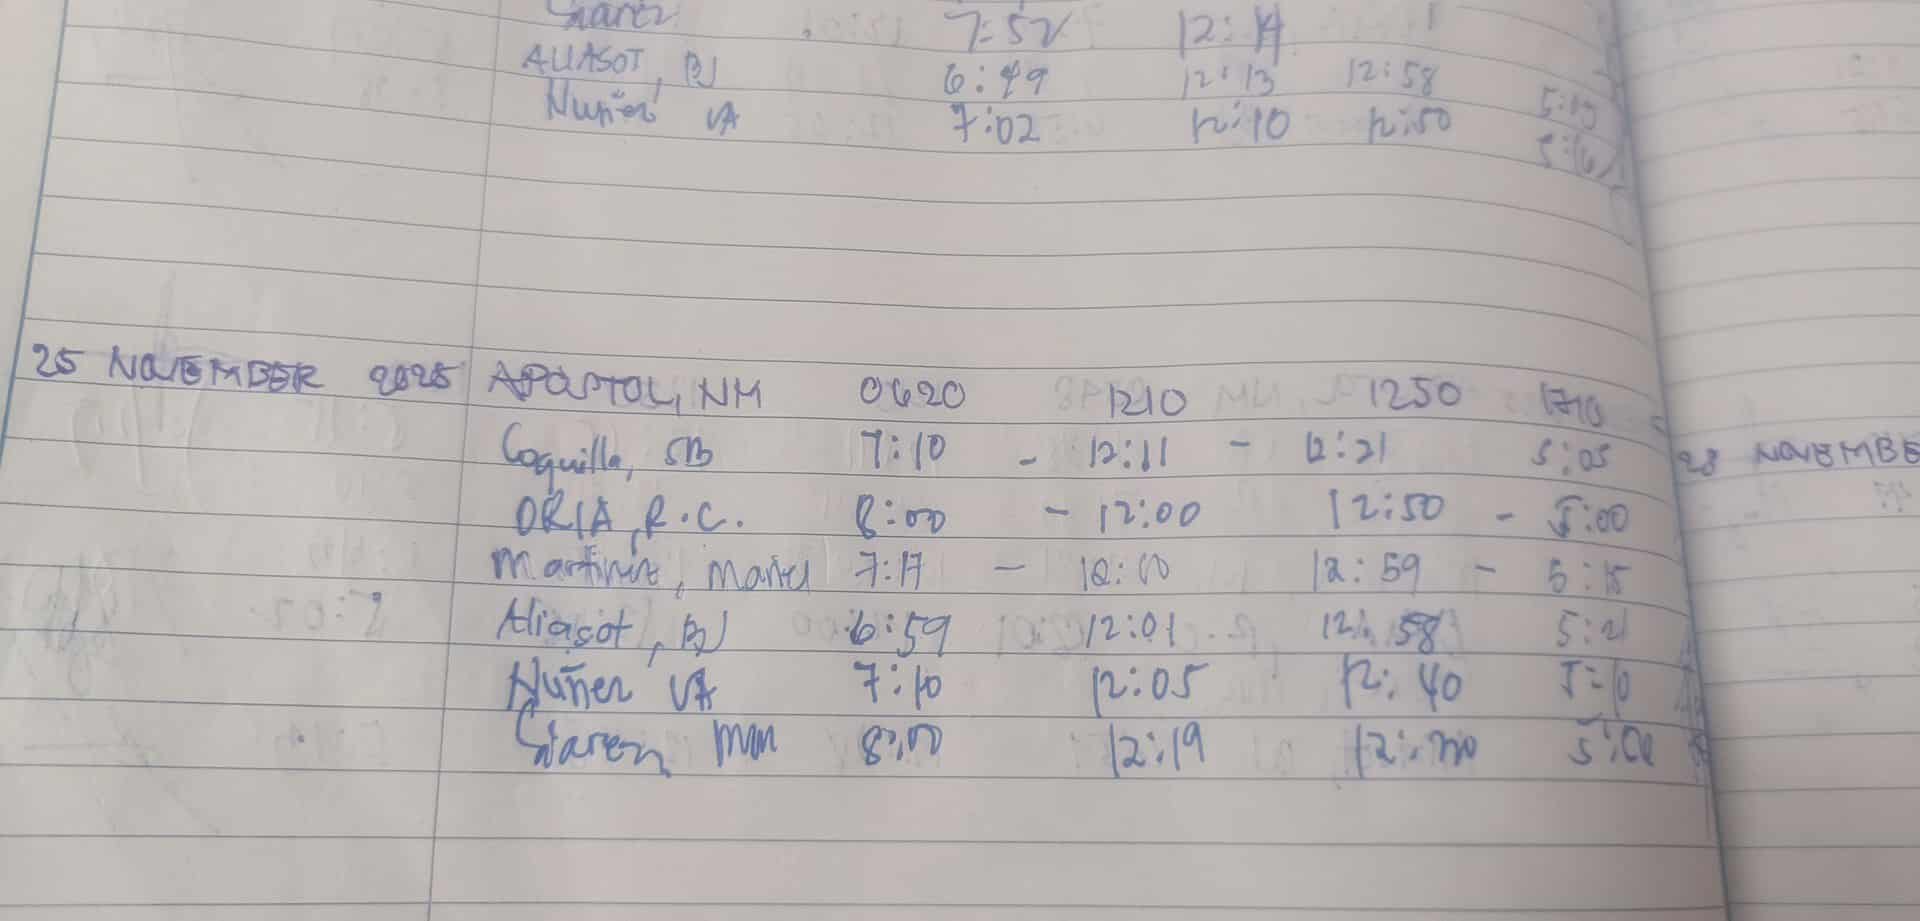 7:52 12:14
ALIASOT, BJ 6:49 12:13 12:58 5:15
Nuñez VA 7:02 12:10 12:50
25 NOVEMBER 2025 APOSTOL, NM 0620 1210 1250 1710
Coquilla, SB 7:10 - 12:11 - 12:21 5:05
ORIA, R.C. 8:00 - 12:00 12:50 - 5:00
Martinez, Mariel 7:17 - 12:00 12:59 - 5:15
Aliasot, BJ 6:59 12:01 12:58 5:21
Nuñez VA 7:10 12:05 12:40 5:10
8:00 12:19
28 NOVEMBE